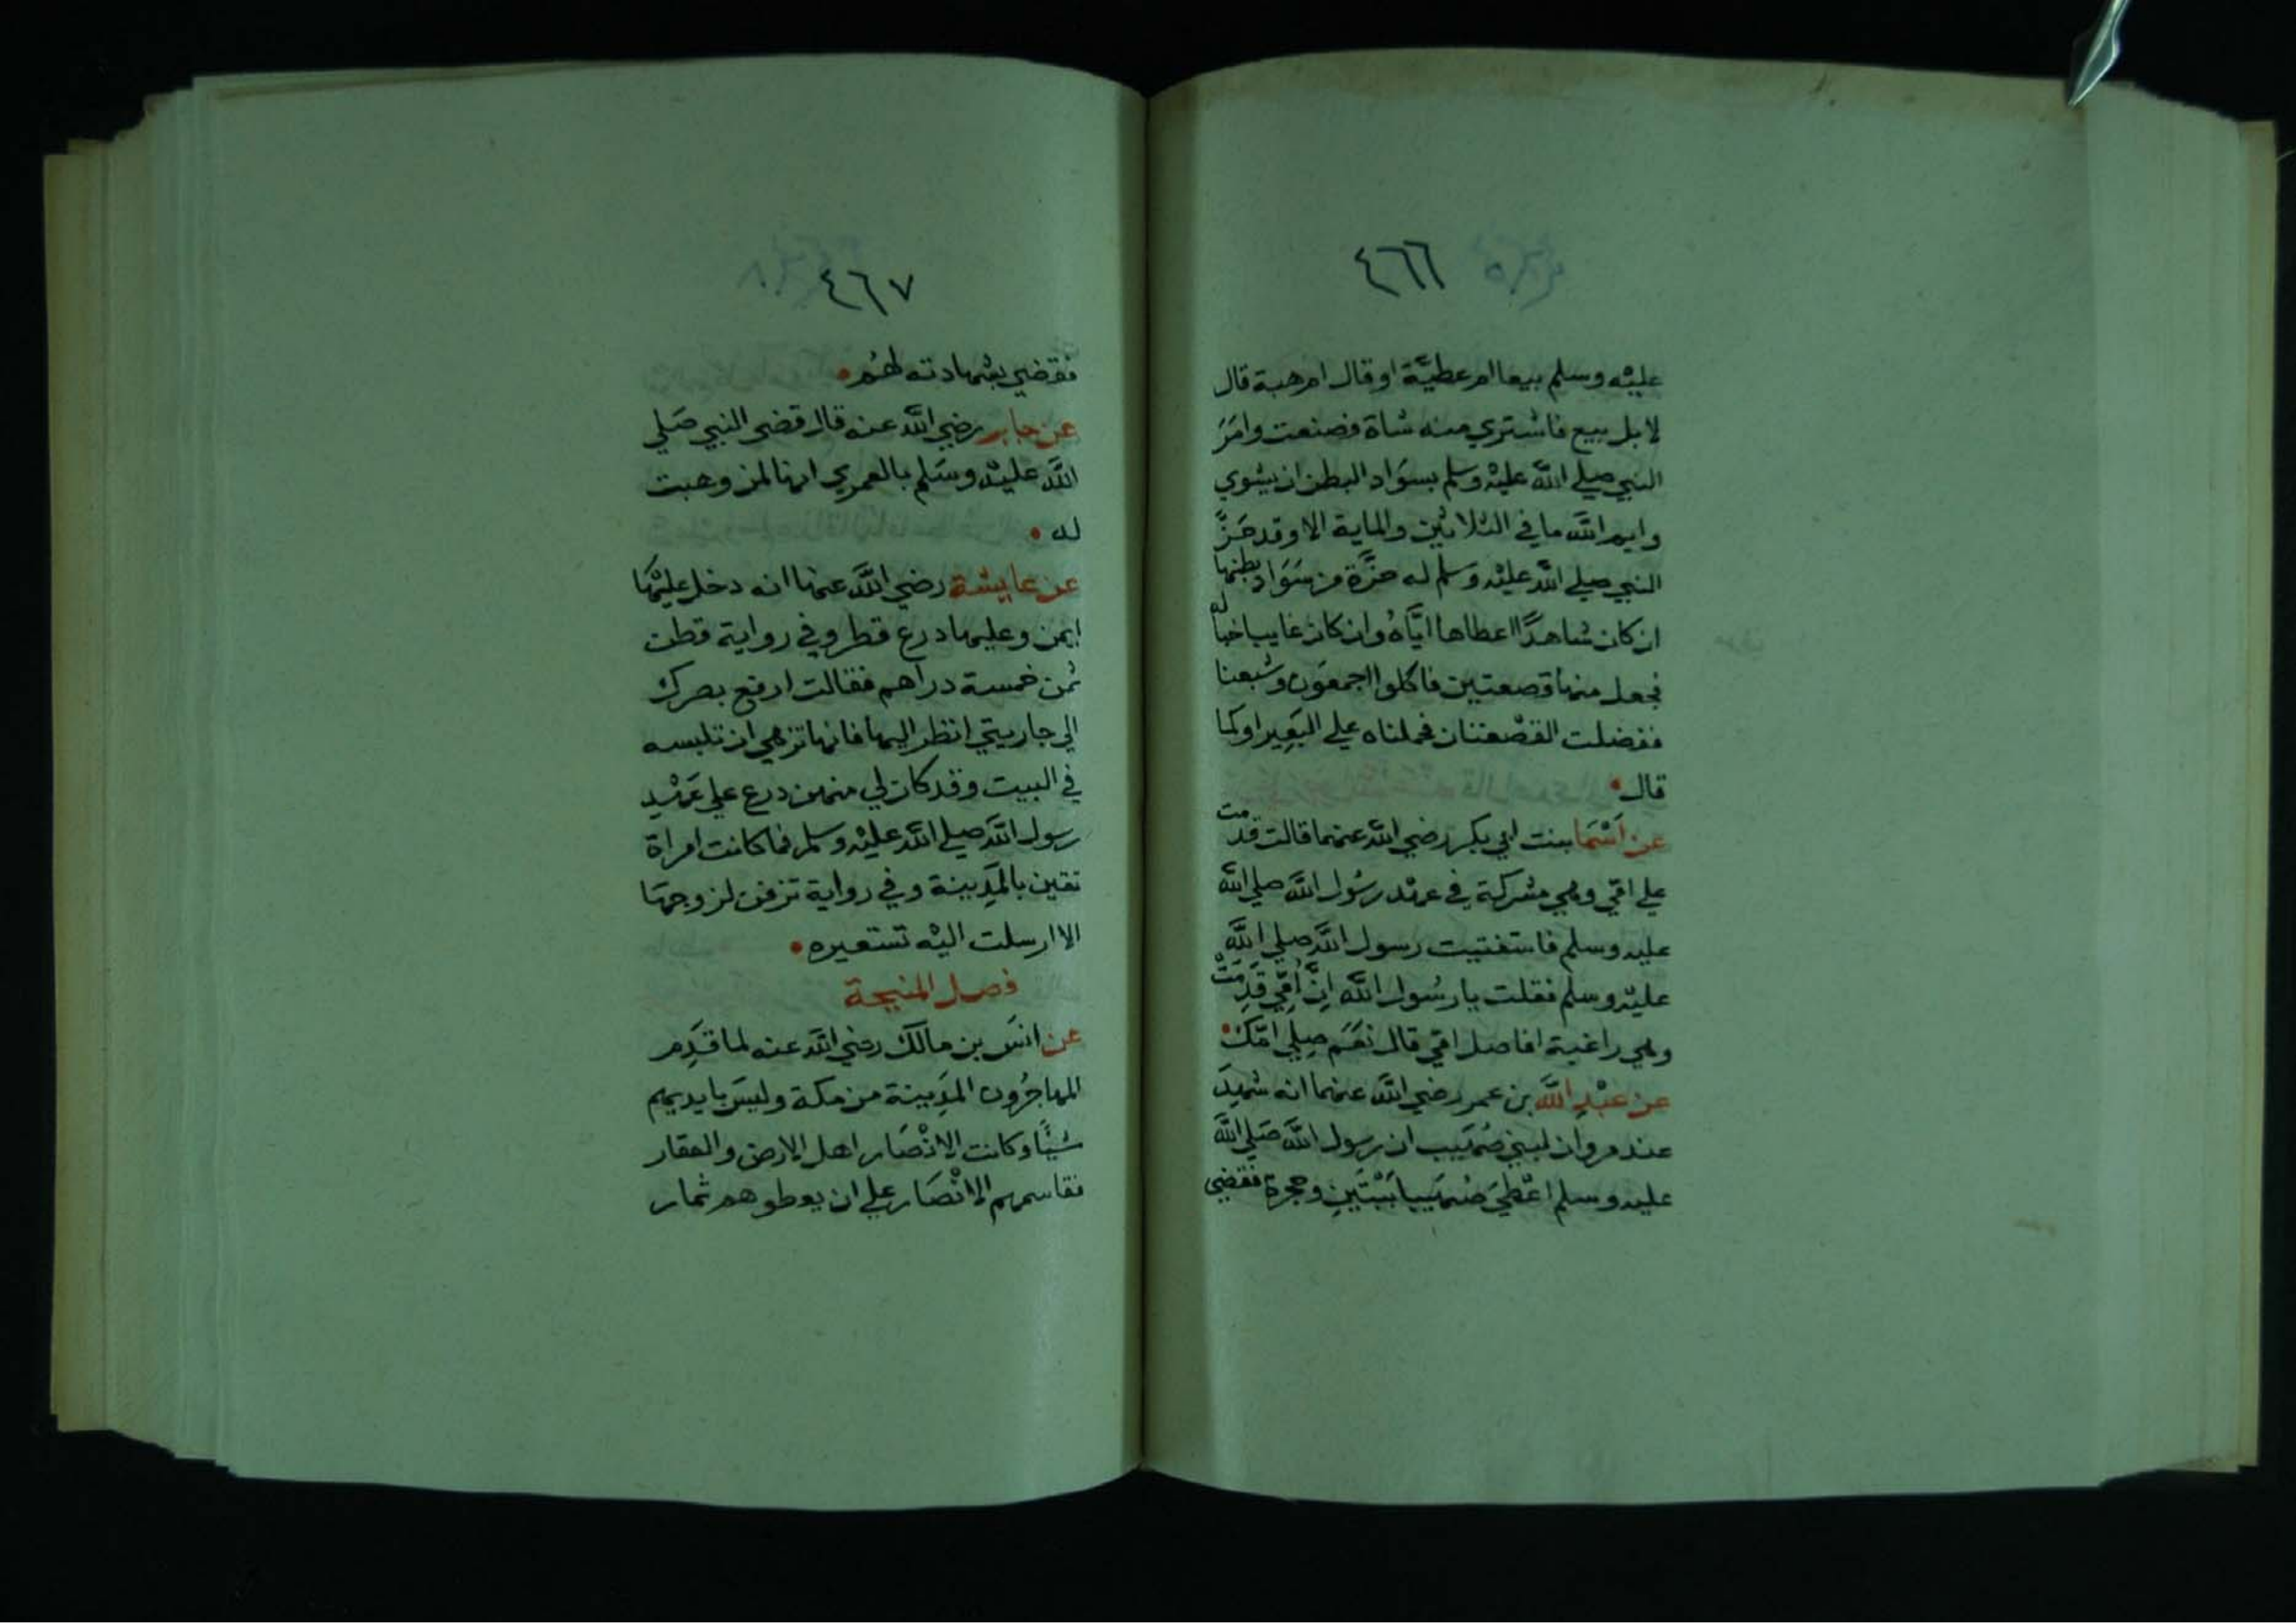 ٤٦٦
عليْه وسلم بيعا ام عطيَّة او قال ام هبة قال
لا بل بيع فاشتري منه شاة فصنعت وامَرَ
النبي صلي اللَّه عليْه وسلم بسوَاد البطن ان يشوي
وايم اللَّه ما في الثلاثين والماية الا وقد حَزَّ
النبي صلي اللَّه عليْه وَسلم له حزَّة من سَوَاد بطنها
ان كان شاهدًا اعطاها ايَّاهُ وان كان غايبا خبا له
فجعل منها قصعتين فاكلوا اجمعَون وشبعنا
ففضلت القصْعتان فحملناه علي البَعِير او كما
قال
عن اَسْمَا بنت ابي بكر رضي اللَّه عنهما قالت قدمت
علي امّي وهي مشركة في عهْد رسُول اللَّه صلي اللَّه
عليه وسلم فاستفتيت رسول اللَّه صلي اللَّه
عليْه وسلم فقلت يا رسُول اللَّه اِنَّ اُمِّي قَدِمَتْ
وهي راغبة افاصل امّي قال نعَم صِلِي امّك
عن عبْدِ اللَّه بن عمر رضي اللَّه عنهما انه شهِدَ
عند مروان لبني صُهَيب ان رسول اللَّه صَلي اللَّه
عليه وسلم اعْطيَ صُهَيبا بَيْتَينِ وحجرة فقضي
٤٦٧
فقضي بشهادته لهُم
عن جابر رضي اللَّه عنه قال قضي النبي صَلي
اللَّه عليْه وسَلم بالعمري انها لمن وهبت
له
عن عايشة رضي اللَّه عنها انه دخل عليْهَا
ايمن وعليها درع قطر وفي رواية قطن
ثمن خمسة دراهم فقالت ارفع بصرك
الي جاريتي انظر اليها فانها تزهي ان تلبسه
في البيت وقد كان لي منهن درع علي عَهْدِ
رسول اللَّه صلي اللَّه عليْه وسلم فما كانت امراة
تقين بالمَدِينة وفي رواية تزفن لزوجهَا
الا ارسلت اليْه تستعيره
فصل المنيحة
عن انسَ بن مالك رضي اللَّه عنه لما قَدِم
المهاجرُون المَدِينة من مكة وليسَ بايديهم
شيْأً وكانت الانْصَار اهل الارض والعقار
فقاسمهم الانْصَار علي ان يعطوهم ثمار